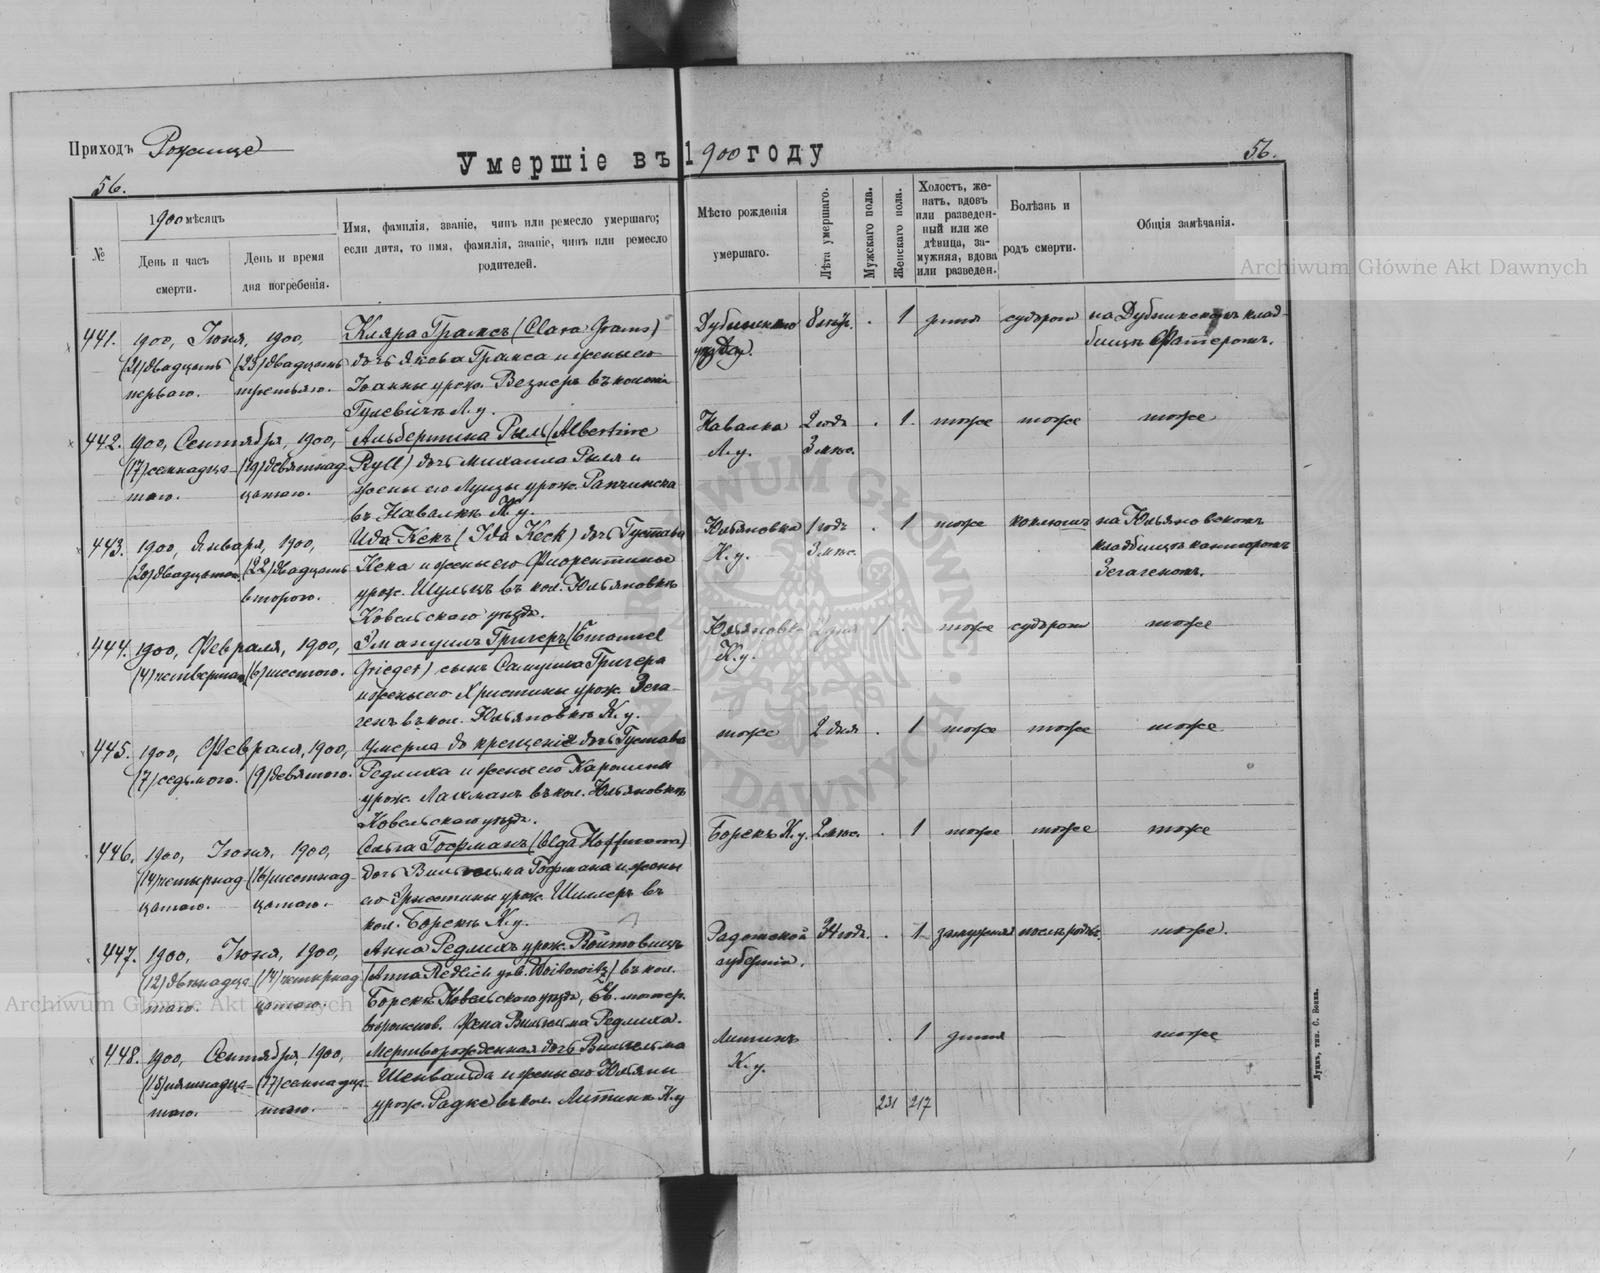 Приходъ Рожище
Умершіе въ 1900 году
56.
56.
№
1900 мѣсяцъ
День и часъ смерти.
День и время дня погребенія.
Имя, фамилія, званіе, чинъ или ремесло умершаго;
если дитя, то имя, фамилія, званіе, чинъ или ремесло
родителей.
Мѣсто рожденія
умершаго.
Лѣта умершаго.
Мужскаго пола.
Женскаго пола.
Холостъ, же-
натъ, вдовъ
или разведен-
ный или же
дѣвица, за-
мужняя, вдова
или разведен.
Болѣзнь и
родъ смерти.
Общія замѣчанія.
441. 1900, Іюня, 1900, Клара Грамсъ (Clara Grams) 8 1 дитя
(21) двадцать (23) двадцать дочь Якова Грамса и жены его
перваго. третьяго. Іоанны урож. въ колоніи
Л. у.
442. 1900, Сентября, 1900, Альбертина Рыль (Albertine Навалка 2 года . 1. тоже тоже тоже
(17) семнадца- (19) девятнад- Ryll) дочь Михаила Рыля и Л. у. 3 мѣс.
таго. цатаго. жены его Луизы урож.
въ Навалкѣ Л. у.
443. 1900, Января, 1900, Ида Кекъ (Ida Keck) дочь Густава Юльяновка 1 годъ . 1 тоже коклюшъ на Юльяновскомъ
(20) двадцатаго (22) двадцать Кека и жены его Флорентины К. у. 3 мѣс. кладбищѣ канторомъ
второго. урож. Шульцъ въ кол. Юльяновкѣ Зегагеномъ.
Ковельскаго уѣзда.
444. 1900, Февраля, 1900, Эмануилъ Григеръ (Emanuel 1 . тоже тоже
(4) четвертаго (6) шестого. Grieger) сынъ Самуила Григера К. у.
и жены его Христины урож. Зега-
генъ въ кол. Юльяновкѣ К. у.
445. 1900, Февраля, 1900, Умерла до крещенія дочь Густава тоже 2 дня . 1 тоже тоже тоже
(7) седьмого. (9) девятого. Редлиха и жены его Каролины
урож. Лахманъ въ кол. Юльяновкѣ
Ковельскаго уѣзда.
446. 1900, Іюня, 1900, Ольга Гофманъ (Olga Hoffmann) Борекъ К. у. 2 мѣс. . 1 тоже тоже тоже
(14) четырнад- (16) шестнад- дочь Вильгельма Гофмана и жены
цатаго. цатаго. его Эрнстины урож. Шиллеръ въ
кол. Борекъ К. у.
447. 1900, Іюня, 1900, Анна Редлихъ урож. Войтовицъ Радомской 34 года. . 1 замужняя тоже.
(12) двѣнадца- (14) четырнад- (Anna Redlich geb. Woitowitz) въ кол. губерніи.
таго. цатаго. Борекъ Ковельскаго уѣзда,
Жена Вильгельма Редлиха.
448. 1900, Сентября, 1900, Мертворожденная дочь Вильгельма Литинъ . 1 дитя тоже
(15) пятнадца- (17) семнадца- Шенвальда и жены его Юліяны К. у.
таго. таго. урож. Радке въ кол. Литинъ К. у.
231 217
Луцкъ, тип. С. Бокка.
Archiwum Główne Akt Dawnych
Archiwum Główne Akt Dawnych
ARCHIWUM GŁÓWNE AKT DAWNYCH